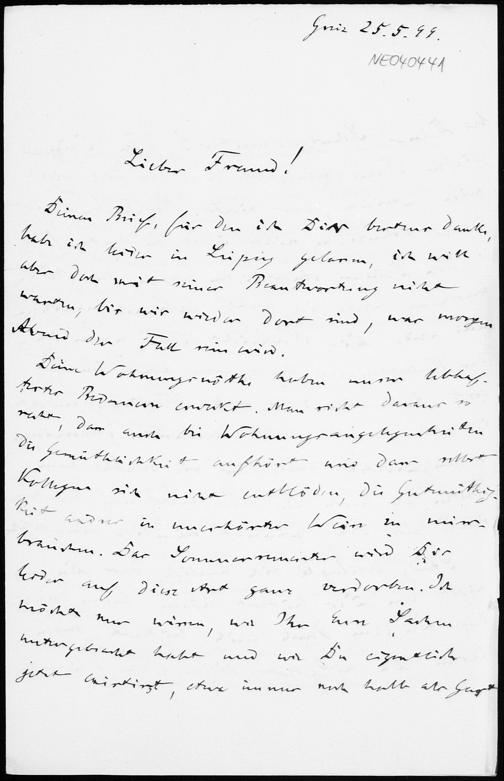 Greiz 25.5.99.
NE04044A
Lieber Freund!
Deinen Brief, für den ich Dir bestens danke,
habe ich leider in Leipzig gelassen, ich will
aber doch mit seiner Beantwortung nicht
warten, bis wir wieder dort sind, was morgen
Abend der Fall sein wird.
Deine Wohnungsnöthe haben unser lebhaf-
testes Bedauern erweckt. Man sieht daraus so
recht, dass auch bei Wohnungsangelegenheiten
die Gemüthlichkeit aufhört und dass selbst
Kollegen sich nicht entblöden, die Gutmüthig-
keit andrer in unerhörter Weise zu miss-
brauchen. Das Sommersemester wird Dir
leider auf diese Art ganz verdorben. Ich
möchte nur wissen, wo Ihr Eure Sachen
untergebracht habt und wie Du eigentlich
jetzt existirst, etwa immer noch halb als Gast